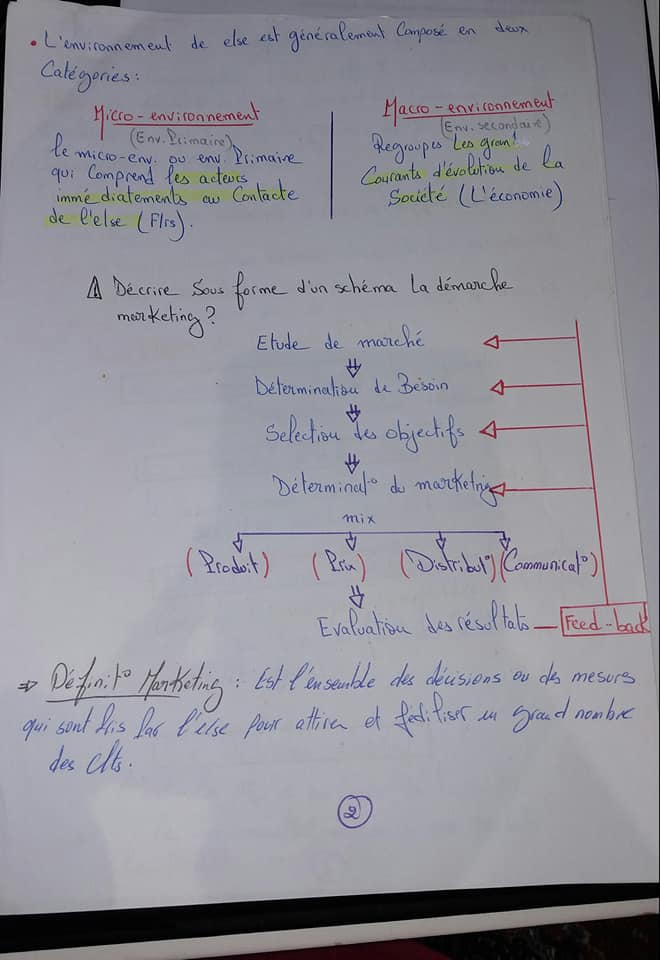 • L'environnement de else est généralement Composé en deux
Catégories :
Micro-environnement
(Env. Primaire)
le micro-env. ou env. Primaire
qui Comprend les acteurs
immédiatements au Contacte
de l'else (F/rs).
Macro-environnement
(Env. secondaire)
Regroupes Les gran
Courants d'évolution de la
Société (L'économie)
Décrire Sous forme d'un schéma La démarche
marketing ?
Etude de marché
Détermination de Besoin
Selection des objectifs
Déterminat° du marketing
mix
(Produit) (Prix) (Distribut°) (Communicat°)
Evaluation des résultats — Feed-back
⇒ Définit° Marketing : Est l'ensemble des décisions ou des mesures
qui sont Pris Par l'else pour attirer et fédiliser un grand nombre
des Clts.
2